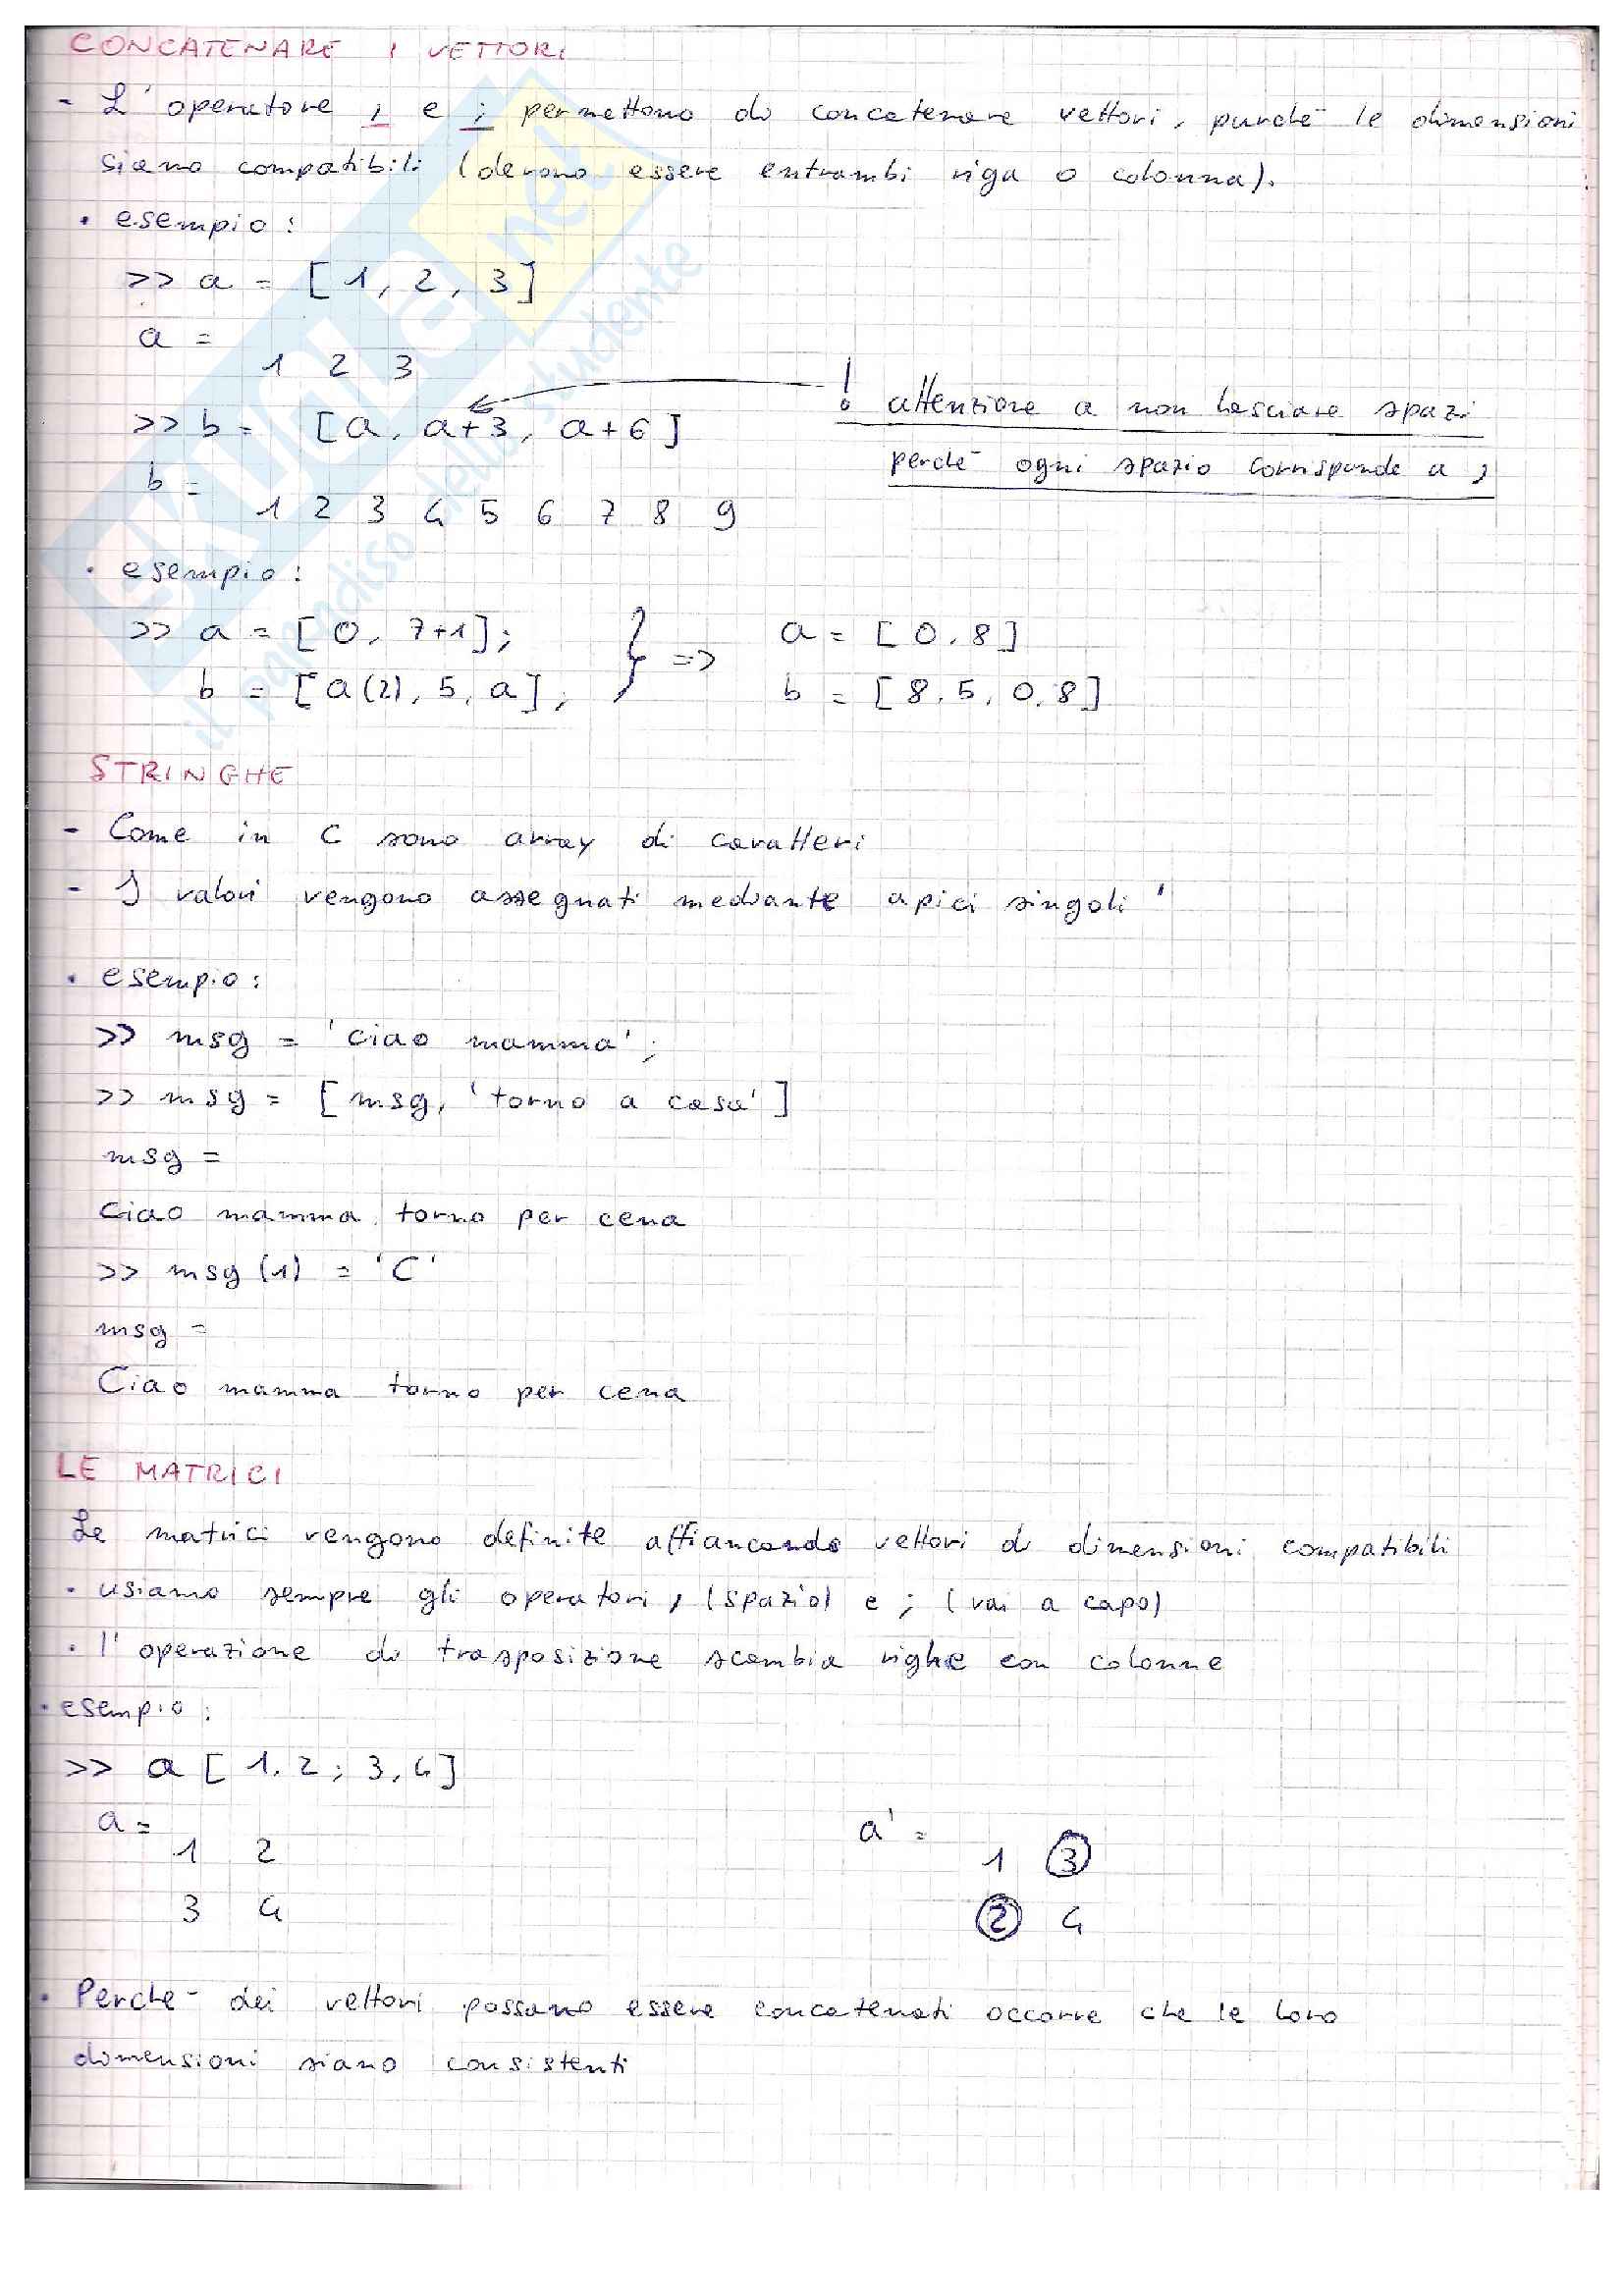 CONCATENARE I VETTORI
- L'operatore , e ; permettono di concatenare vettori, purché le dimensioni
siano compatibili (devono essere entrambi riga o colonna).
• esempio:
>> a = [1, 2, 3]
a =
1 2 3
>> b = [a, a+3, a+6]
! attenzione a non lasciare spazi
perché ogni spazio corrisponde a ,
b =
1 2 3 4 5 6 7 8 9
• esempio:
>> a = [0, 7+1]; } => a = [0,8]
b = [a(2), 5, a]; b = [8,5,0,8]
STRINGHE
- Come in C sono array di caratteri
- I valori vengono assegnati mediante apici singoli '
• esempio:
>> msg = 'ciao mamma';
>> msg = [msg, 'torno a casa']
msg =
ciao mamma, torno per cena
>> msg(1) = 'C'
msg =
Ciao mamma torno per cena
LE MATRICI
Le matrici vengono definite affiancando vettori di dimensioni compatibili
• usiamo sempre gli operatori , (spazio) e ; (vai a capo)
• l'operazione di trasposizione scambia righe con colonne
• esempio:
>> a [1,2; 3,4]
a = a' =
1 2 1 3
3 4 2 4
• Perché dei vettori possano essere concatenati occorre che le loro
dimensioni siano consistenti
skuola.net
il paradiso dello studente